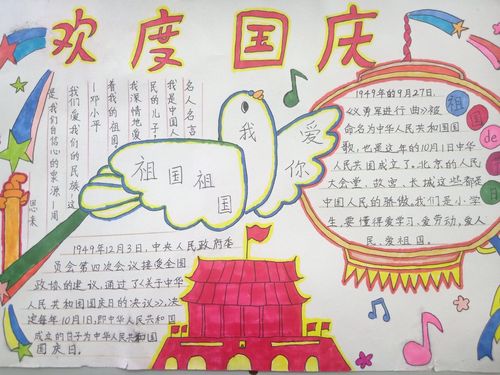 欢度国庆
名人名言
我是中国人
民的儿子，
我深情地爱
着我的祖国
—邓小平
我们爱我们的民族，这
是我们自信心的泉源—周
恩来
我爱你
祖国祖国
1949年的9月27日，
《义勇军进行曲》被
命名为中华人民共和国国
歌，也是这年的10月1日中华
人民共国成立了。北京的人民
大会堂、故宫、长城这些都是
中国人民的骄傲，我们是小学
生，要懂得爱学习、爱劳动，爱人
民、爱祖国。
祖
国
de
生
日
1949年12月3日，中央人民政府委
员会第四次会议接受全国
政协的建议，通过了《关于中华
人民共和国国庆日的决议》，决
定每年10月1日，即中华人民共和国
成立的日子为中华人民共和国
国庆日。